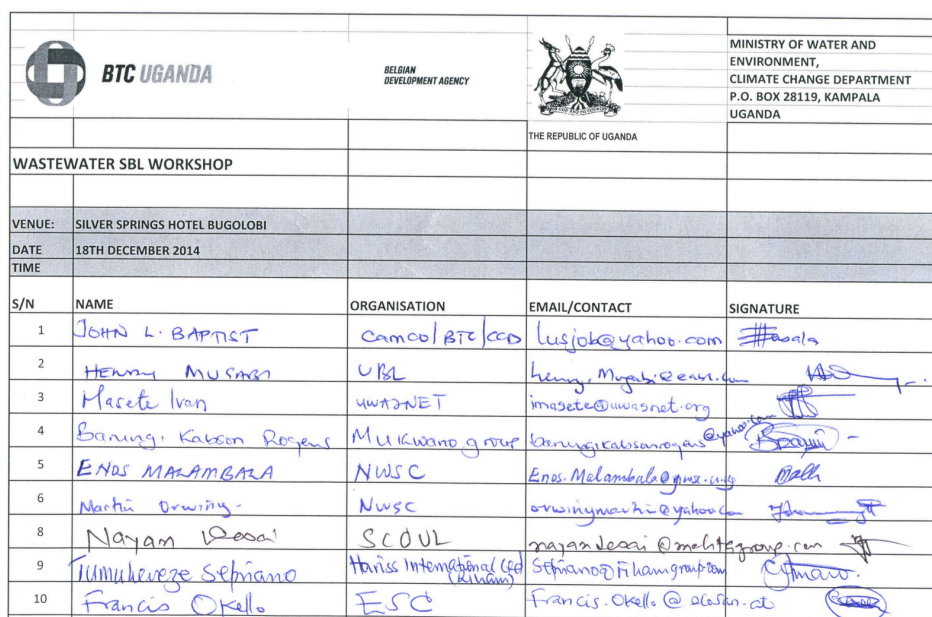 BTC UGANDA
BELGIAN
DEVELOPMENT AGENCY
THE REPUBLIC OF UGANDA
MINISTRY OF WATER AND
ENVIRONMENT,
CLIMATE CHANGE DEPARTMENT
P.O. BOX 28119, KAMPALA
UGANDA
WASTEWATER SBL WORKSHOP
VENUE: SILVER SPRINGS HOTEL BUGOLOBI
DATE 18TH DECEMBER 2014
TIME
S/N NAME ORGANISATION EMAIL/CONTACT SIGNATURE
1 JOHN L. BAPTIST Camco/BTC/CCD lusjob@yahoo.com
2 HENRY UBL
3 Masete Ivan UWASNET imasete@uwasnet.org
4 Barungi Kabson Rogens Mukwano group barungikabsonrogens@yahoo.com
5 ENOS MALAMBALA NWSC
6 Martin Orwiny NWSC
8 Nayan Desai SCOUL
9 Tumuheveze Sepriano Hariss International Ltd (Riham)
10 Francis Okello ESC Francis.Okello@ecosan.at